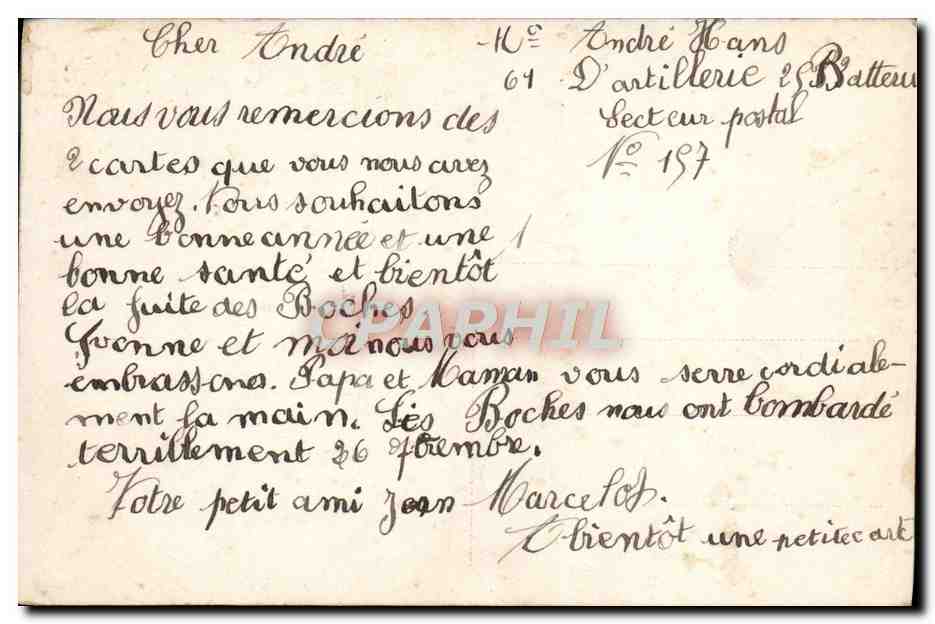 Cher André
Mr André Hans
61 D'artillerie 25 Batteri
Secteur postal
No 157
Nous vous remercions des
2 cartes que vous nous avez
envoyez. Nous souhaitons
une bonne année et une
bonne santé et bientôt
la fuite des Boches
Yvonne et moi nous vous
embrassons. Papa et Maman vous serre cordiale-
ment la main. Les Boches nous ont bombardé
terrillement 26
Votre petit ami Jean
A bientôt une petite cart
CPAPHIL